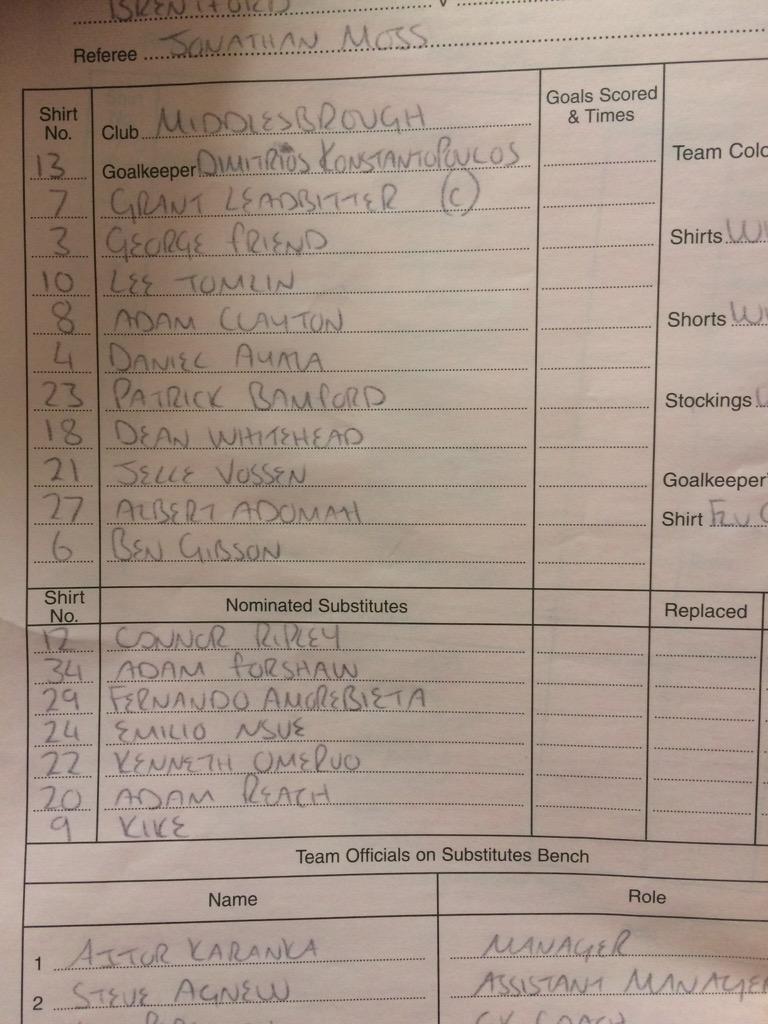 BRENTFORD V
Referee JONATHAN MOSS
Shirt No. Club MIDDLESBROUGH Goals Scored & Times
13 Goalkeeper DIMITRIOS KONSTANTOPOULOS Team
7 GRANT LEADBITTER (C)
3 GEORGE FRIEND Shirts
10 LEE TOMLIN
8 ADAM CLAYTON Shorts
4 DANIEL AYALA
23 PATRICK BAMFORD Stockings
18 DEAN WHITEHEAD
21 JELLE VOSSEN Goalkeeper'
27 ALBERT ADOMAH Shirt
6 BEN GIBSON
Shirt No. Nominated Substitutes Replaced
12 CONNOR RIPLEY
34 ADAM FORSHAW
29 FERNANDO AMOREBIETA
24 EMILIO NSUE
22 KENNETH OMERUO
20 ADAM REACH
9 KIKE
Team Officials on Substitutes Bench
Name Role
1 AITOR KARANKA MANAGER
2 STEVE AGNEW ASSISTANT MANAGER
COACH